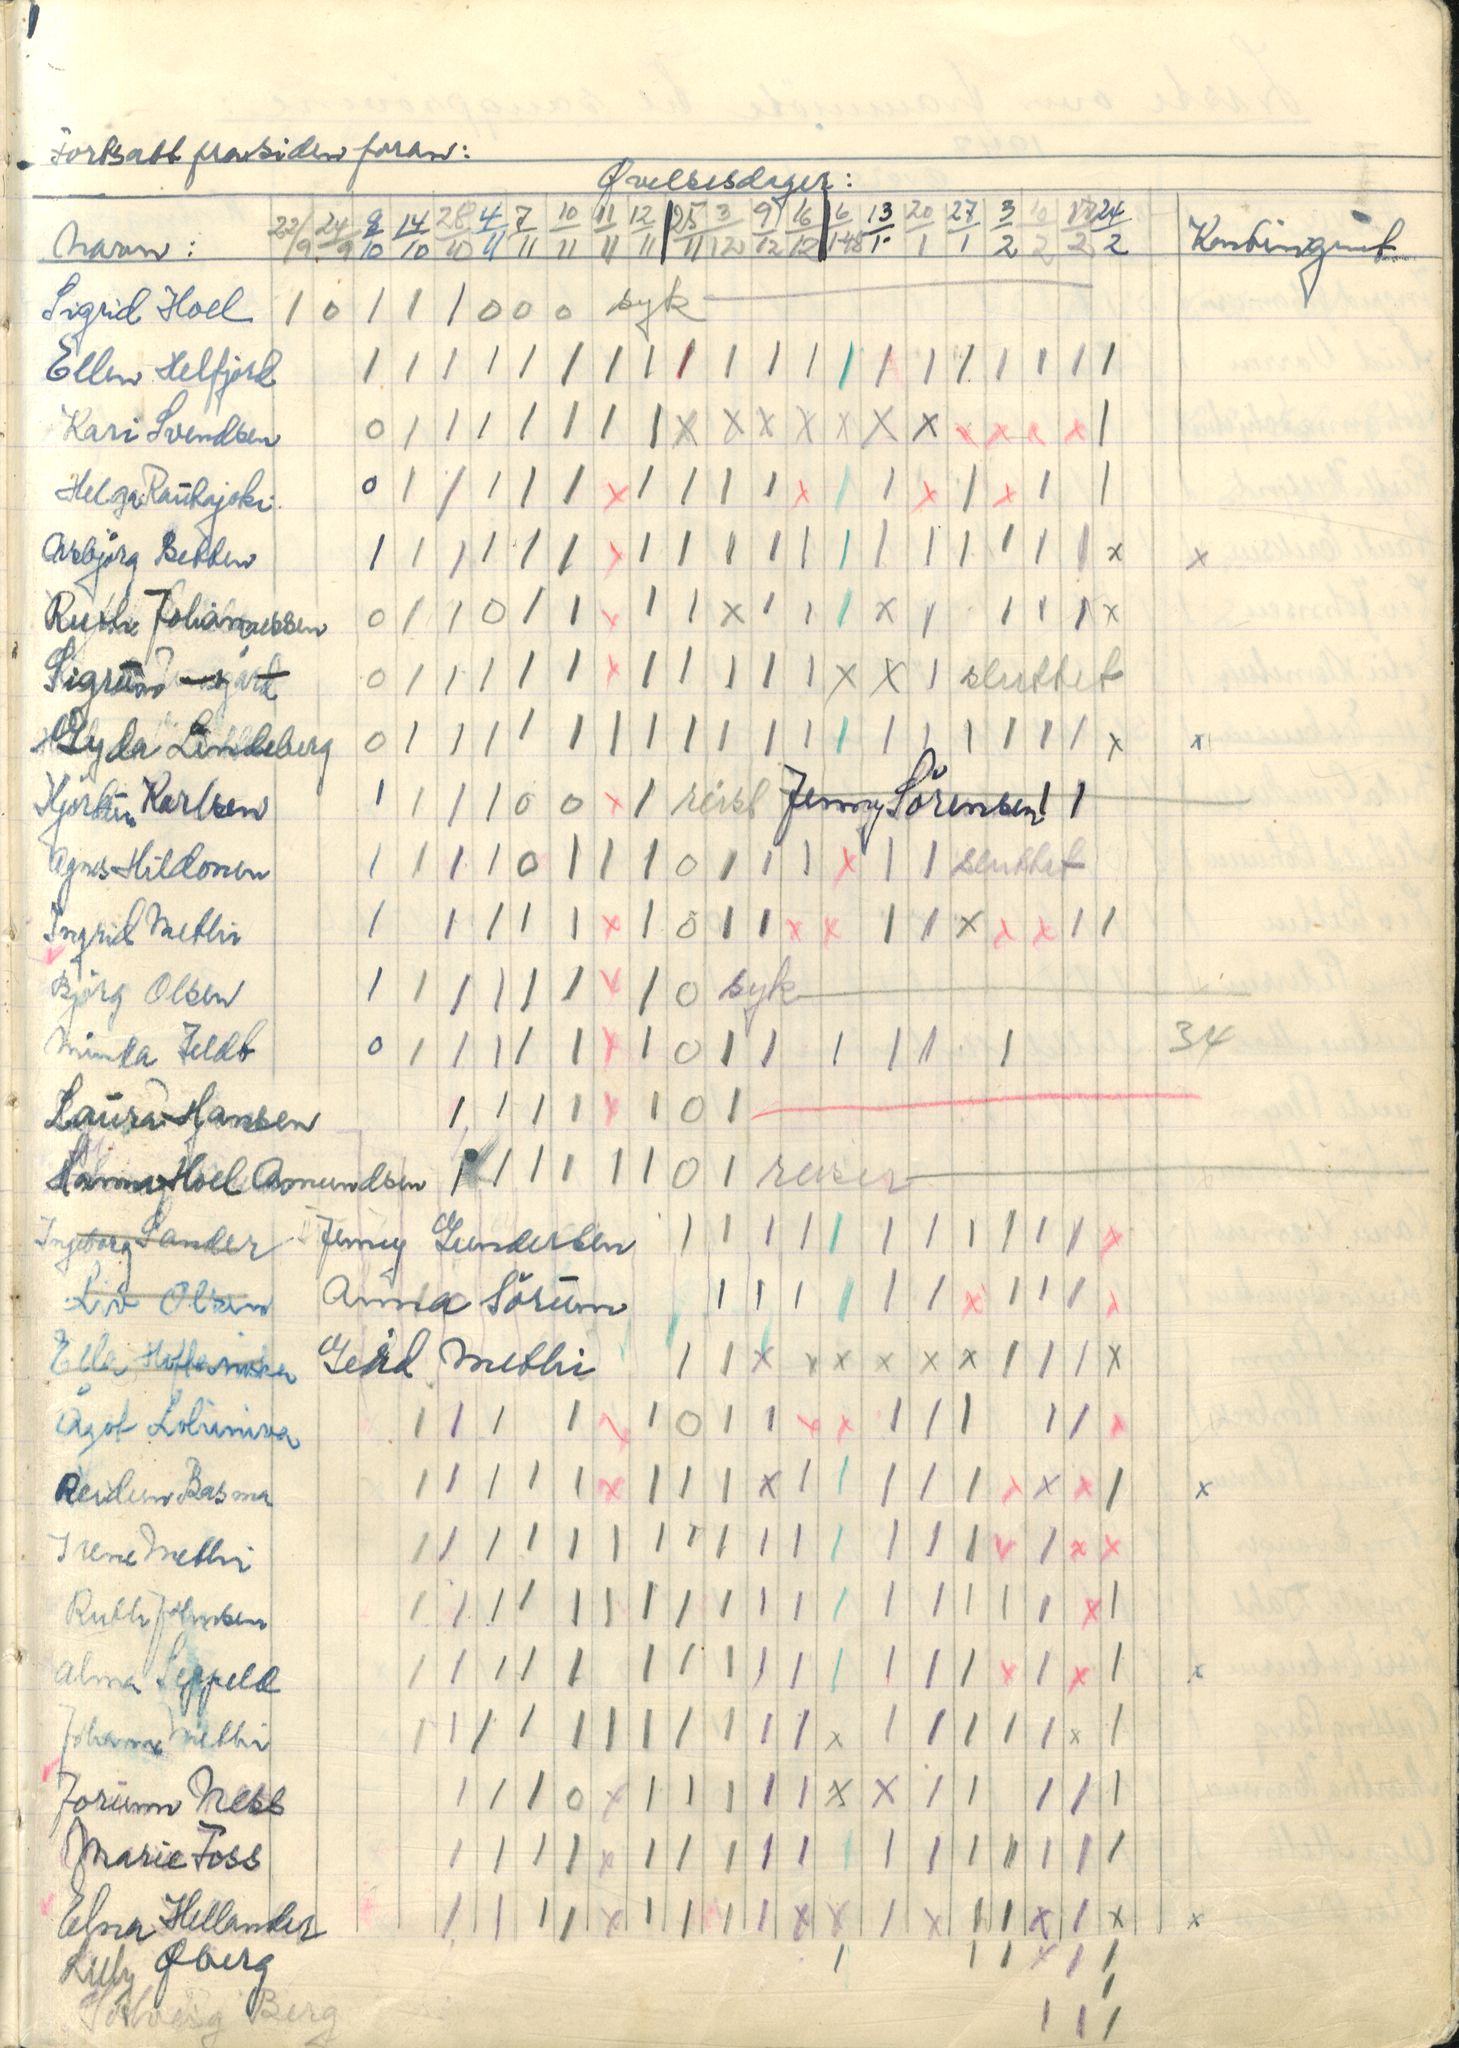 Fortsatt fra siden foran:
Øvelsesdager:
Navn: 22/9 24/9 8/10 14/10 28/10 4/11 7/11 10/11 11/11 12/11 25/11 3/12 9/12 16/12 6/1-48 13/1 20/1 27/1 3/2 10/2 17/2 24/2 Kontingent
Sigrid Hoel 1 0 1 1 1 0 0 0 syk
Ellen Helfjord 1 1 1 1 1 1 1 1 1 1 1 1 1 1 1 1 1 1 1 1
Kari Svendsen 0 1 1 1 1 1 1 1 x x x x x x x x x x x 1
Helga Rauhajoki 0 1 1 1 1 1 x 1 1 1 1 x 1 1 x 1 x 1 1
Asbjørg Betten 1 1 1 1 1 1 x 1 1 1 1 1 1 1 1 1 1 1 1 x x
Ruth Johannessen 0 1 1 0 1 1 x 1 1 x 1 1 1 x 1 1 1 1 x
Sigrun 0 1 1 1 1 1 x 1 1 1 1 1 x x 1 sluttet
Gyda Lindeberg 0 1 1 1 1 1 1 1 1 1 1 1 1 1 1 1 1 1 1 x x
Hjørdis Karlsen 1 1 1 1 0 0 x 1 reist Jenny Sörensen 1 1
Agnes Hildonen 1 1 1 1 0 1 1 1 0 1 1 1 x 1 1 sluttet
Ingrid Methi 1 1 1 1 1 x 1 0 1 1 x x 1 1 x x x 1 1
Bjørg Olsen 1 1 1 1 1 1 x 1 0 syk
Minda Feldt 0 1 1 1 1 1 x 1 0 1 1 1 1 1 1 34
Laura Hansen 1 1 1 1 x 1 0 1
Hanna Hoel Amundsen 1 1 1 1 1 1 0 1 reiser
Ingeborg Sander Jenny Gundersen 1 1 1 1 1 1 1 1 1 1 1 x
Liv Olsen Anna Sörum 1 1 1 1 1 1 x 1 1 1 x
Ella Gerd Methi 1 1 x x x x x x 1 1 1 x
Ågot Lobiniva 1 1 1 1 x 1 0 1 1 x x 1 1 1 1 1 x
Reidun Basma 1 1 1 1 1 x 1 1 1 x 1 1 1 1 1 x x x 1 x
Irene Methi 1 1 1 1 1 1 1 1 1 1 1 1 1 1 1 x 1 x x
Ruth Johnsen 1 1 1 1 1 1 1 1 1 1 1 1 1 1 1 1 1 x 1
Alma Seppelä 1 1 1 1 1 1 1 1 1 1 1 1 1 1 x 1 x 1 x
Johanne Methi 1 1 1 1 1 1 1 1 1 1 1 x 1 1 1 1 1 x 1
Jorunn Ness 1 1 1 0 x 1 1 1 1 1 x x 1 1 1 1 1
Marie Foss 1 1 1 1 x 1 1 1 1 1 1 1 1 1 1 1 1 1
Elna Hellander 1 1 1 1 x 1 1 1 1 x x 1 x 1 1 x 1 x x
Lilly Øberg 1 1 1 x 1 1
Berg 1 1 1